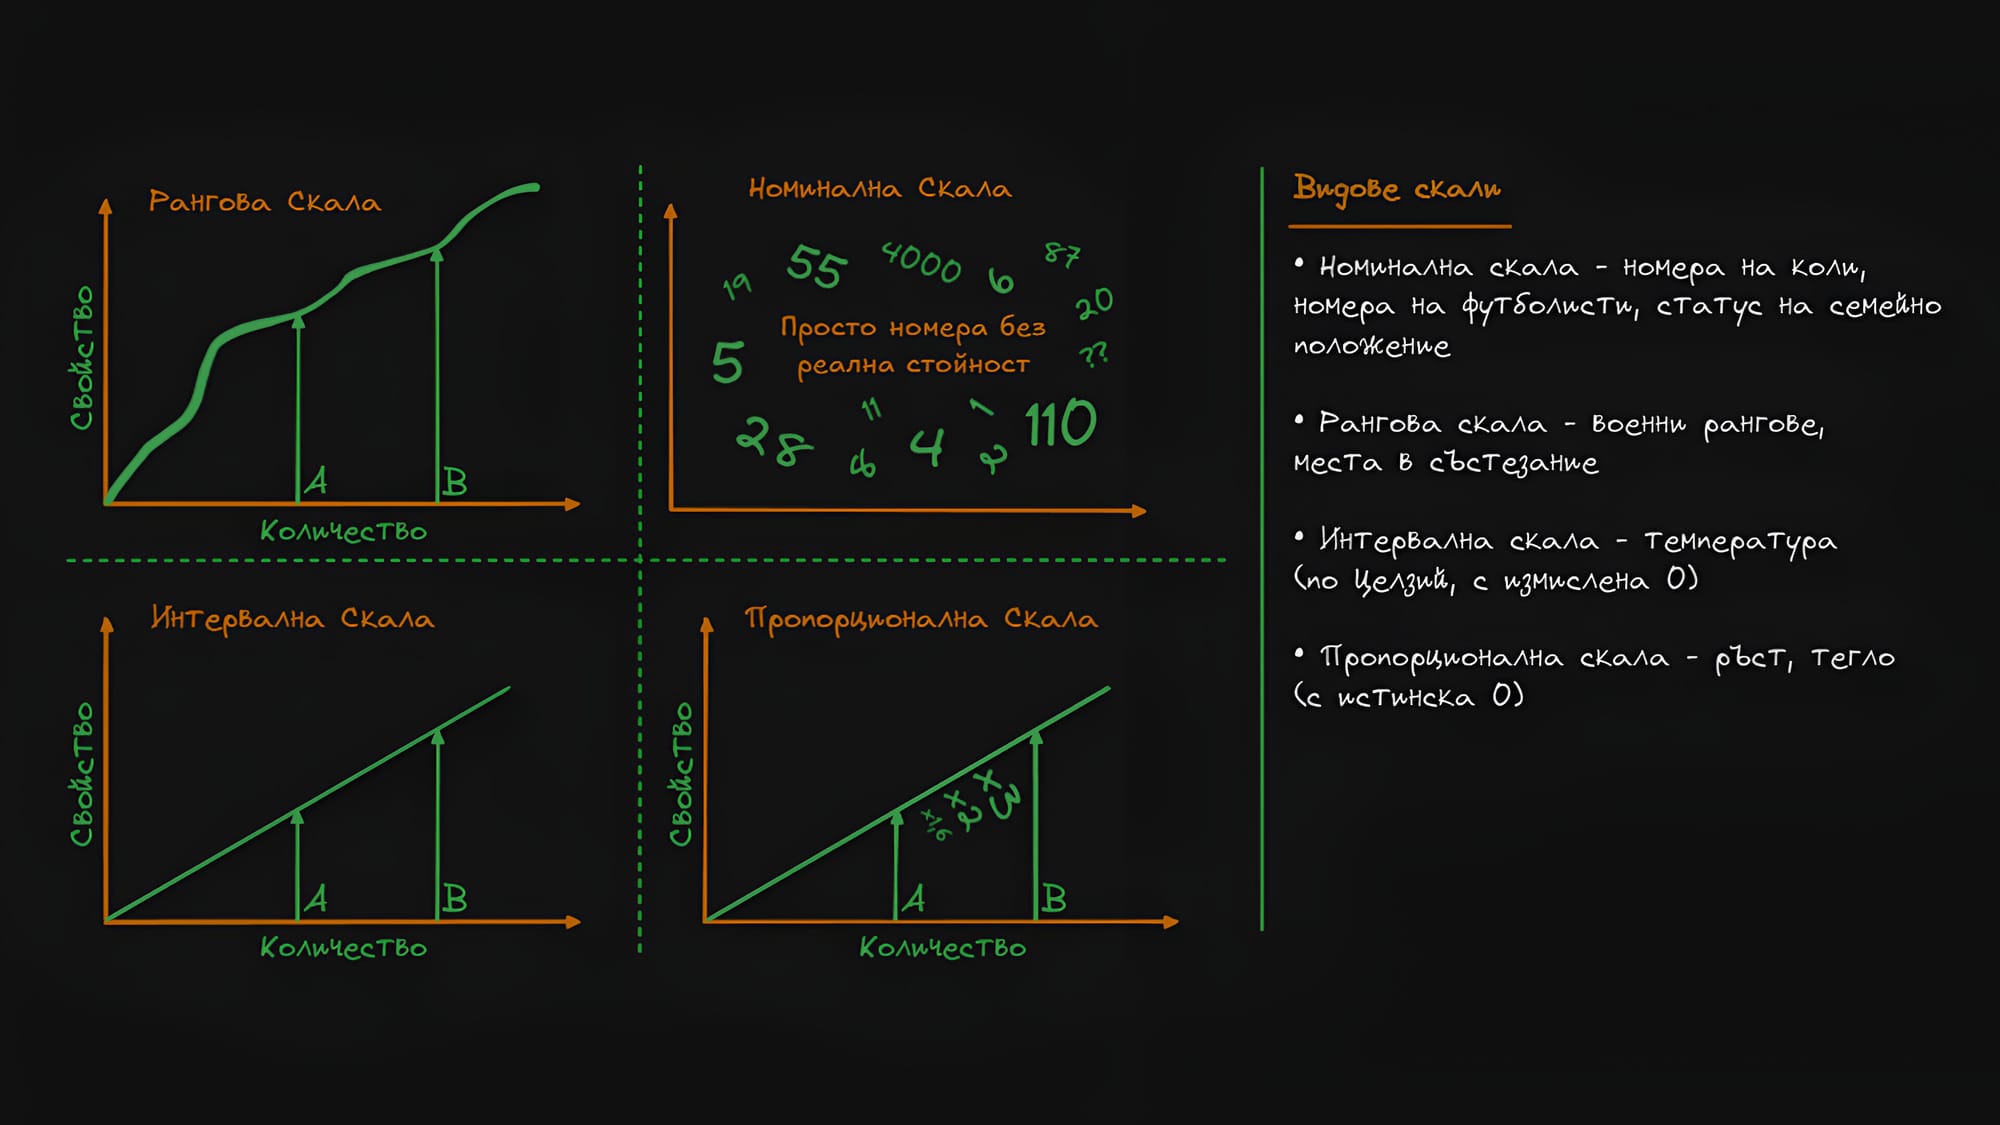 Рангова Скала
Свойство
A
B
Количество
Номинална Скала
19
55
4000
6
87
20
Просто номера без
реална стойност
5
??
28
11
6
4
1
2
110
Интервална Скала
Свойство
A
B
Количество
Пропорционална Скала
Свойство
x1,6
x2
x3
A
B
Количество
Видове скали
• Номинална скала - номера на коли,
номера на футболисти, статус на семейно
положение
• Рангова скала - военни рангове,
места в състезание
• Интервална скала - температура
(по Целзий, с измислена 0)
• Пропорционална скала - ръст, тегло
(с истинска 0)